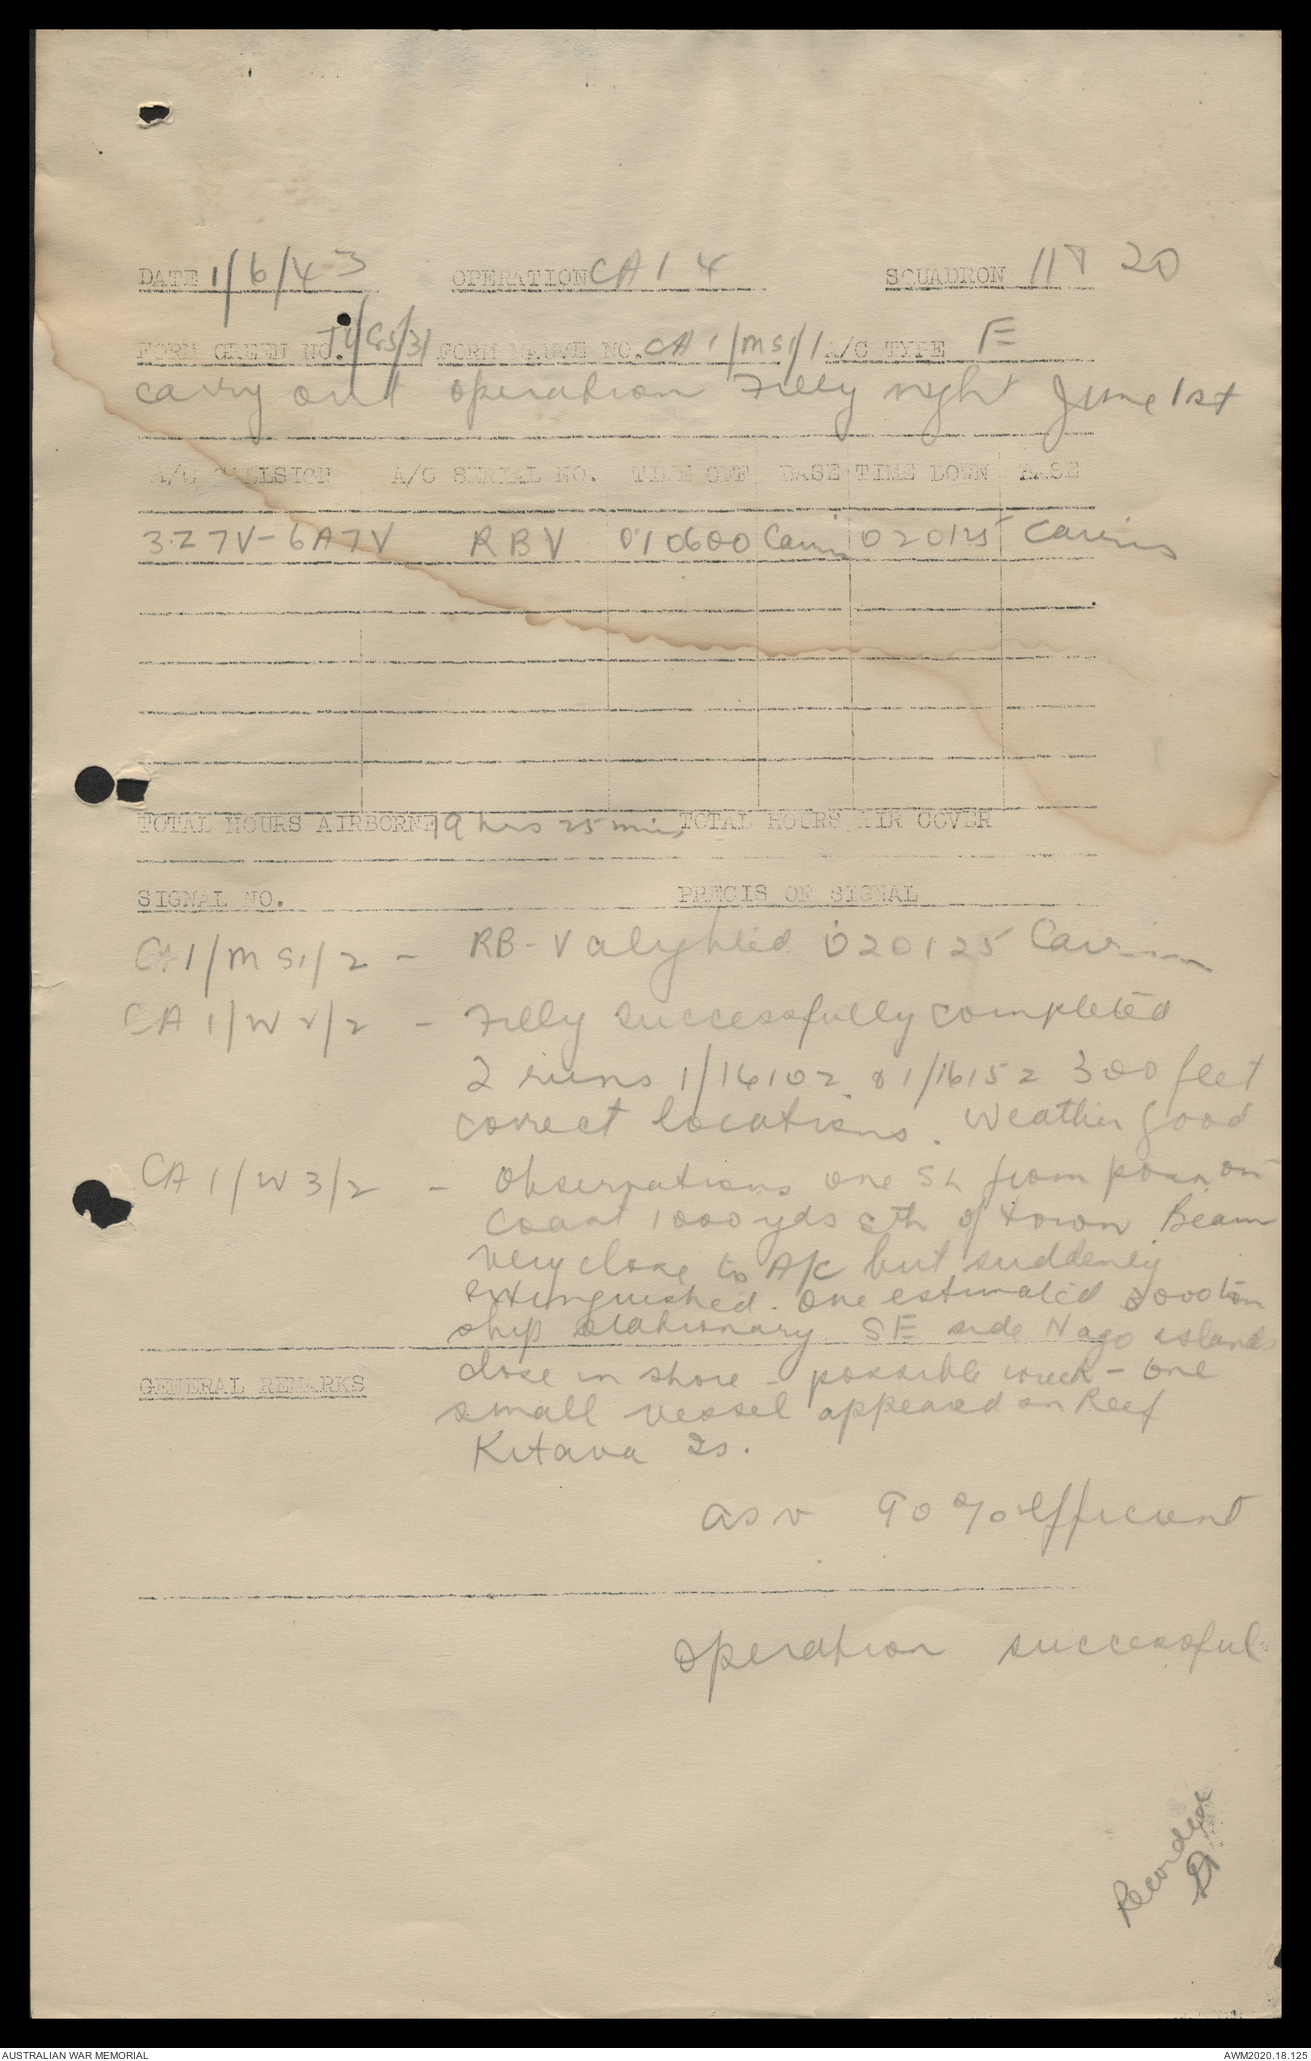 DATE 1/6/43 OPERATION CA 1 4 SQUADRON 11 & 20
FORM GREEN NO. FORM MAUVE NO. CA 1/MS1/1 A/C TYPE F
carry out operation Filly night June 1st
A/C CALLSIGN A/C SERIAL NO. TIME OFF BASE TIME DOWN BASE
3Z7V-6A7V RBV 010600 Cairns 020125 Cairns
TOTAL HOURS AIRBORNE 19 hrs 25 min, TOTAL HOURS AIR COVER
SIGNAL NO. PRECIS OF SIGNAL
CA1/MS1/2 - RB-V alighted 020125 Cairns
CA 1/W2/2 - Filly successfully completed
2 runs 1/1610Z & 1/1615Z 300 feet
correct locations. Weather good
CA 1/W3/2 - Observations one SL from posn on
Coast 1000 yds sth of town Beam
very close to A/C but suddenly
extinguished. One estimated 3000 ton
ship stationary SE side Nago island
close in shore - possible wreck - one
GENERAL REMARKS
small vessel appeared on Reef
Kitava Is.
asv 90% efficient
Operation successful
Recorded
AUSTRALIAN WAR MEMORIAL AWM2020.18.125